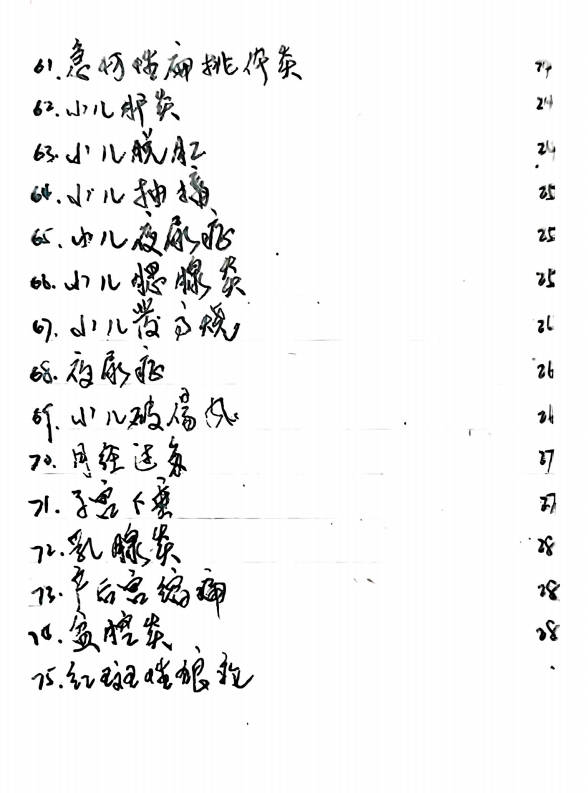 61.急性扁挑体炎 24
62.小儿肝炎 24
63.小儿脱肛 24
64.小儿抽搐 25
65.小儿夜尿症 25
66.小儿腮腺炎 25
67.小儿发高烧 26
68.夜尿症 26
69.小儿破傷风 26
70.月经过多 27
71.子宫下垂 27
72.乳腺炎 28
73.产后宫缩痛 28
74.盆腔炎 28
75.红斑性狼疮